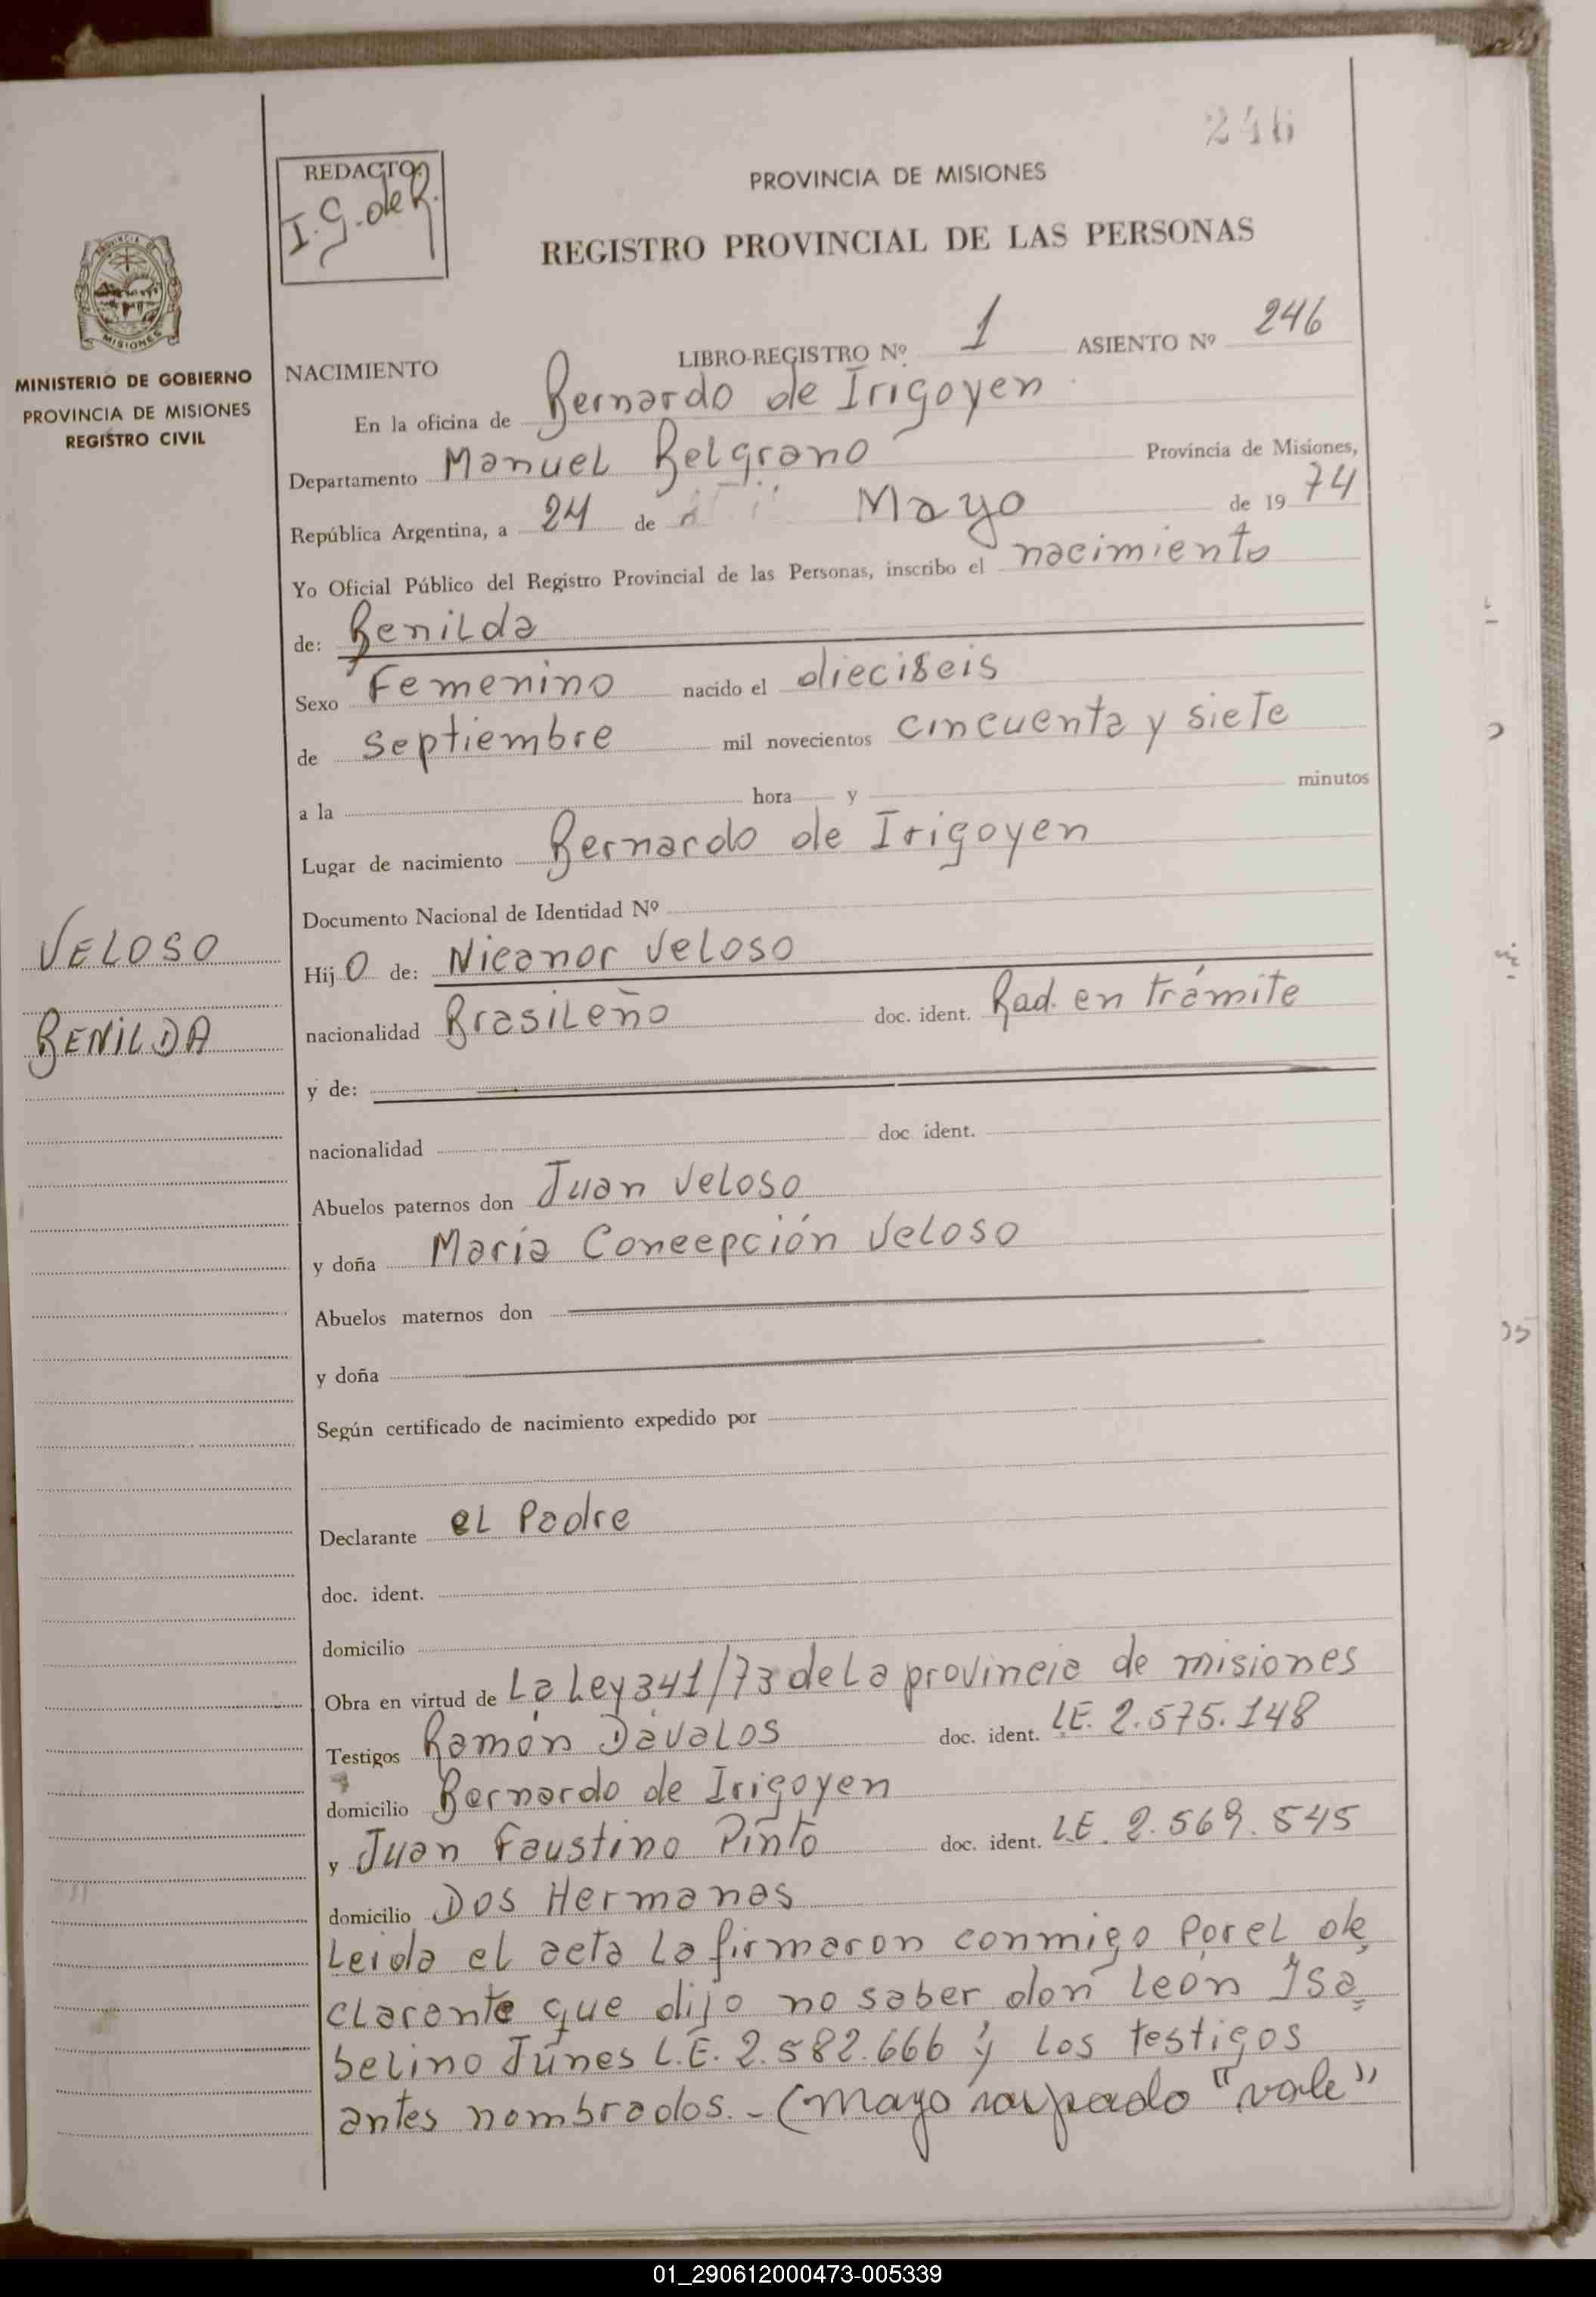 246
REDACTO:
I. G. de R.
PROVINCIA DE MISIONES
REGISTRO PROVINCIAL DE LAS PERSONAS
PROVINCIA DE
MISIONES
MINISTERIO DE GOBIERNO
PROVINCIA DE MISIONES
REGISTRO CIVIL
NACIMIENTO LIBRO-REGISTRO Nº 1 ASIENTO Nº 246
En la oficina de Bernardo de Irigoyen
Departamento Manuel Belgrano Provincia de Misiones,
República Argentina, a 24 de Mayo de 1974
Yo Oficial Público del Registro Provincial de las Personas, inscribo el nacimiento
de: Benilda
Sexo Femenino nacido el dieciseis
de septiembre mil novecientos cincuenta y siete
a la hora y minutos
Lugar de nacimiento Bernardo de Irigoyen
Documento Nacional de Identidad Nº
VELOSO
BENILDA
Hij O de: Nicanor Veloso
nacionalidad Brasileño doc. ident. Rad. en trámite
y de:
nacionalidad doc ident.
Abuelos paternos don Juan Veloso
y doña María Concepción Veloso
Abuelos maternos don
y doña
Según certificado de nacimiento expedido por
Declarante el Padre
doc. ident.
domicilio
Obra en virtud de La Ley 341/73 de La provincia de misiones
Testigos Ramón Dávalos doc. ident. L.E. 2.575.148
domicilio Bernardo de Irigoyen
y Juan Faustino Pinto doc. ident. L.E. 2.569.545
domicilio Dos Hermanas
Leida el acta la firmaron conmigo Por el de
clarante que dijo no saber don León Isa
belino Júnes L.E. 2.582.666 y los testigos
antes nombrados. - (Mayo raspado "vale"
01_290612000473-005339